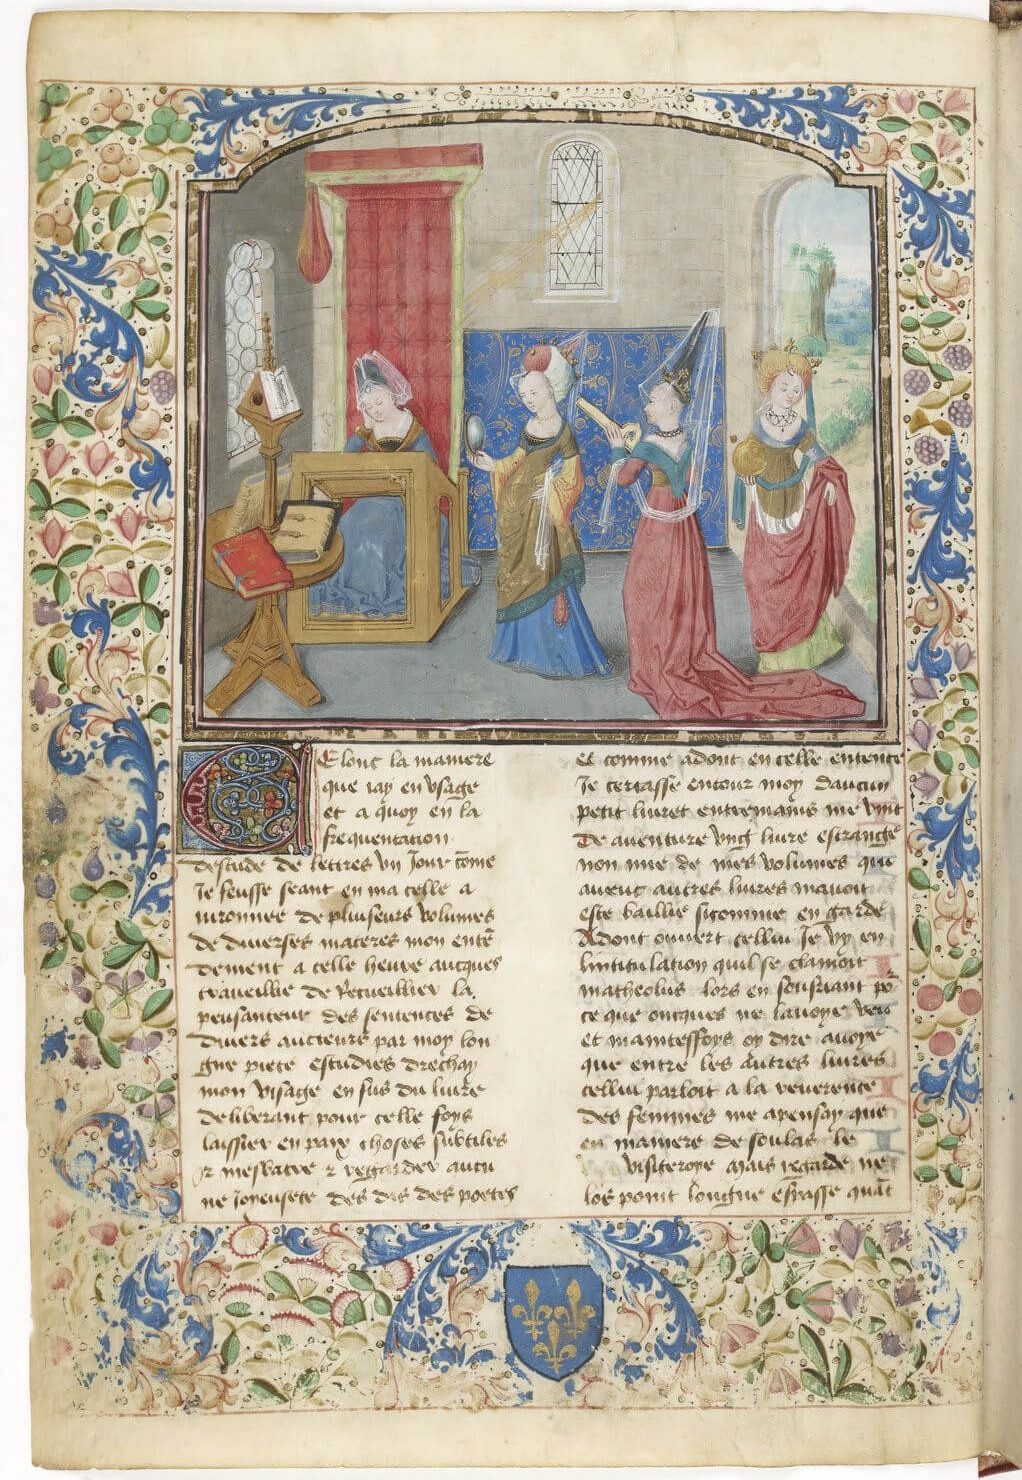 Selonc la maniere
que iay en vsage
et a quoy en la
frequentation
destude de lettres vn iour cõme
Je feusse seant en ma celle a
uironnee de pluseurs volumes
de diuerses materes mon entẽ
dement a celle heure aucques
traueillie de Recueillier la
pensanteur des sentences de
diuers aucteurs par moy lon
gue piece estudies drechay
mon visage en sus du liure
deliberant pour celle foys
laissier en paix choses subtiles
et mesbatre et regarder aucu
ne Joyeusete des dis des poetes
et comme adont en celle entente
Je cercasse entour moy daucun
petit liuret entremains me vint
de auenture vng liure estrange
non mie de mes volumes que
auec autres liures mauoit
este baillie sicomme en garde
Adont ouuert cellui Je vy en
lintitulation quil se clamoit
matheolus lors en sousriant põ
ce que oncques ne lauoye veu
et maintesfoys oy dire auoye
que entre les autres liures
cellui parloit a la reuerence
des femmes me apensay que
en maniere de soulas le
visiteroye Mais regarde ne
los point longue espasse quãt